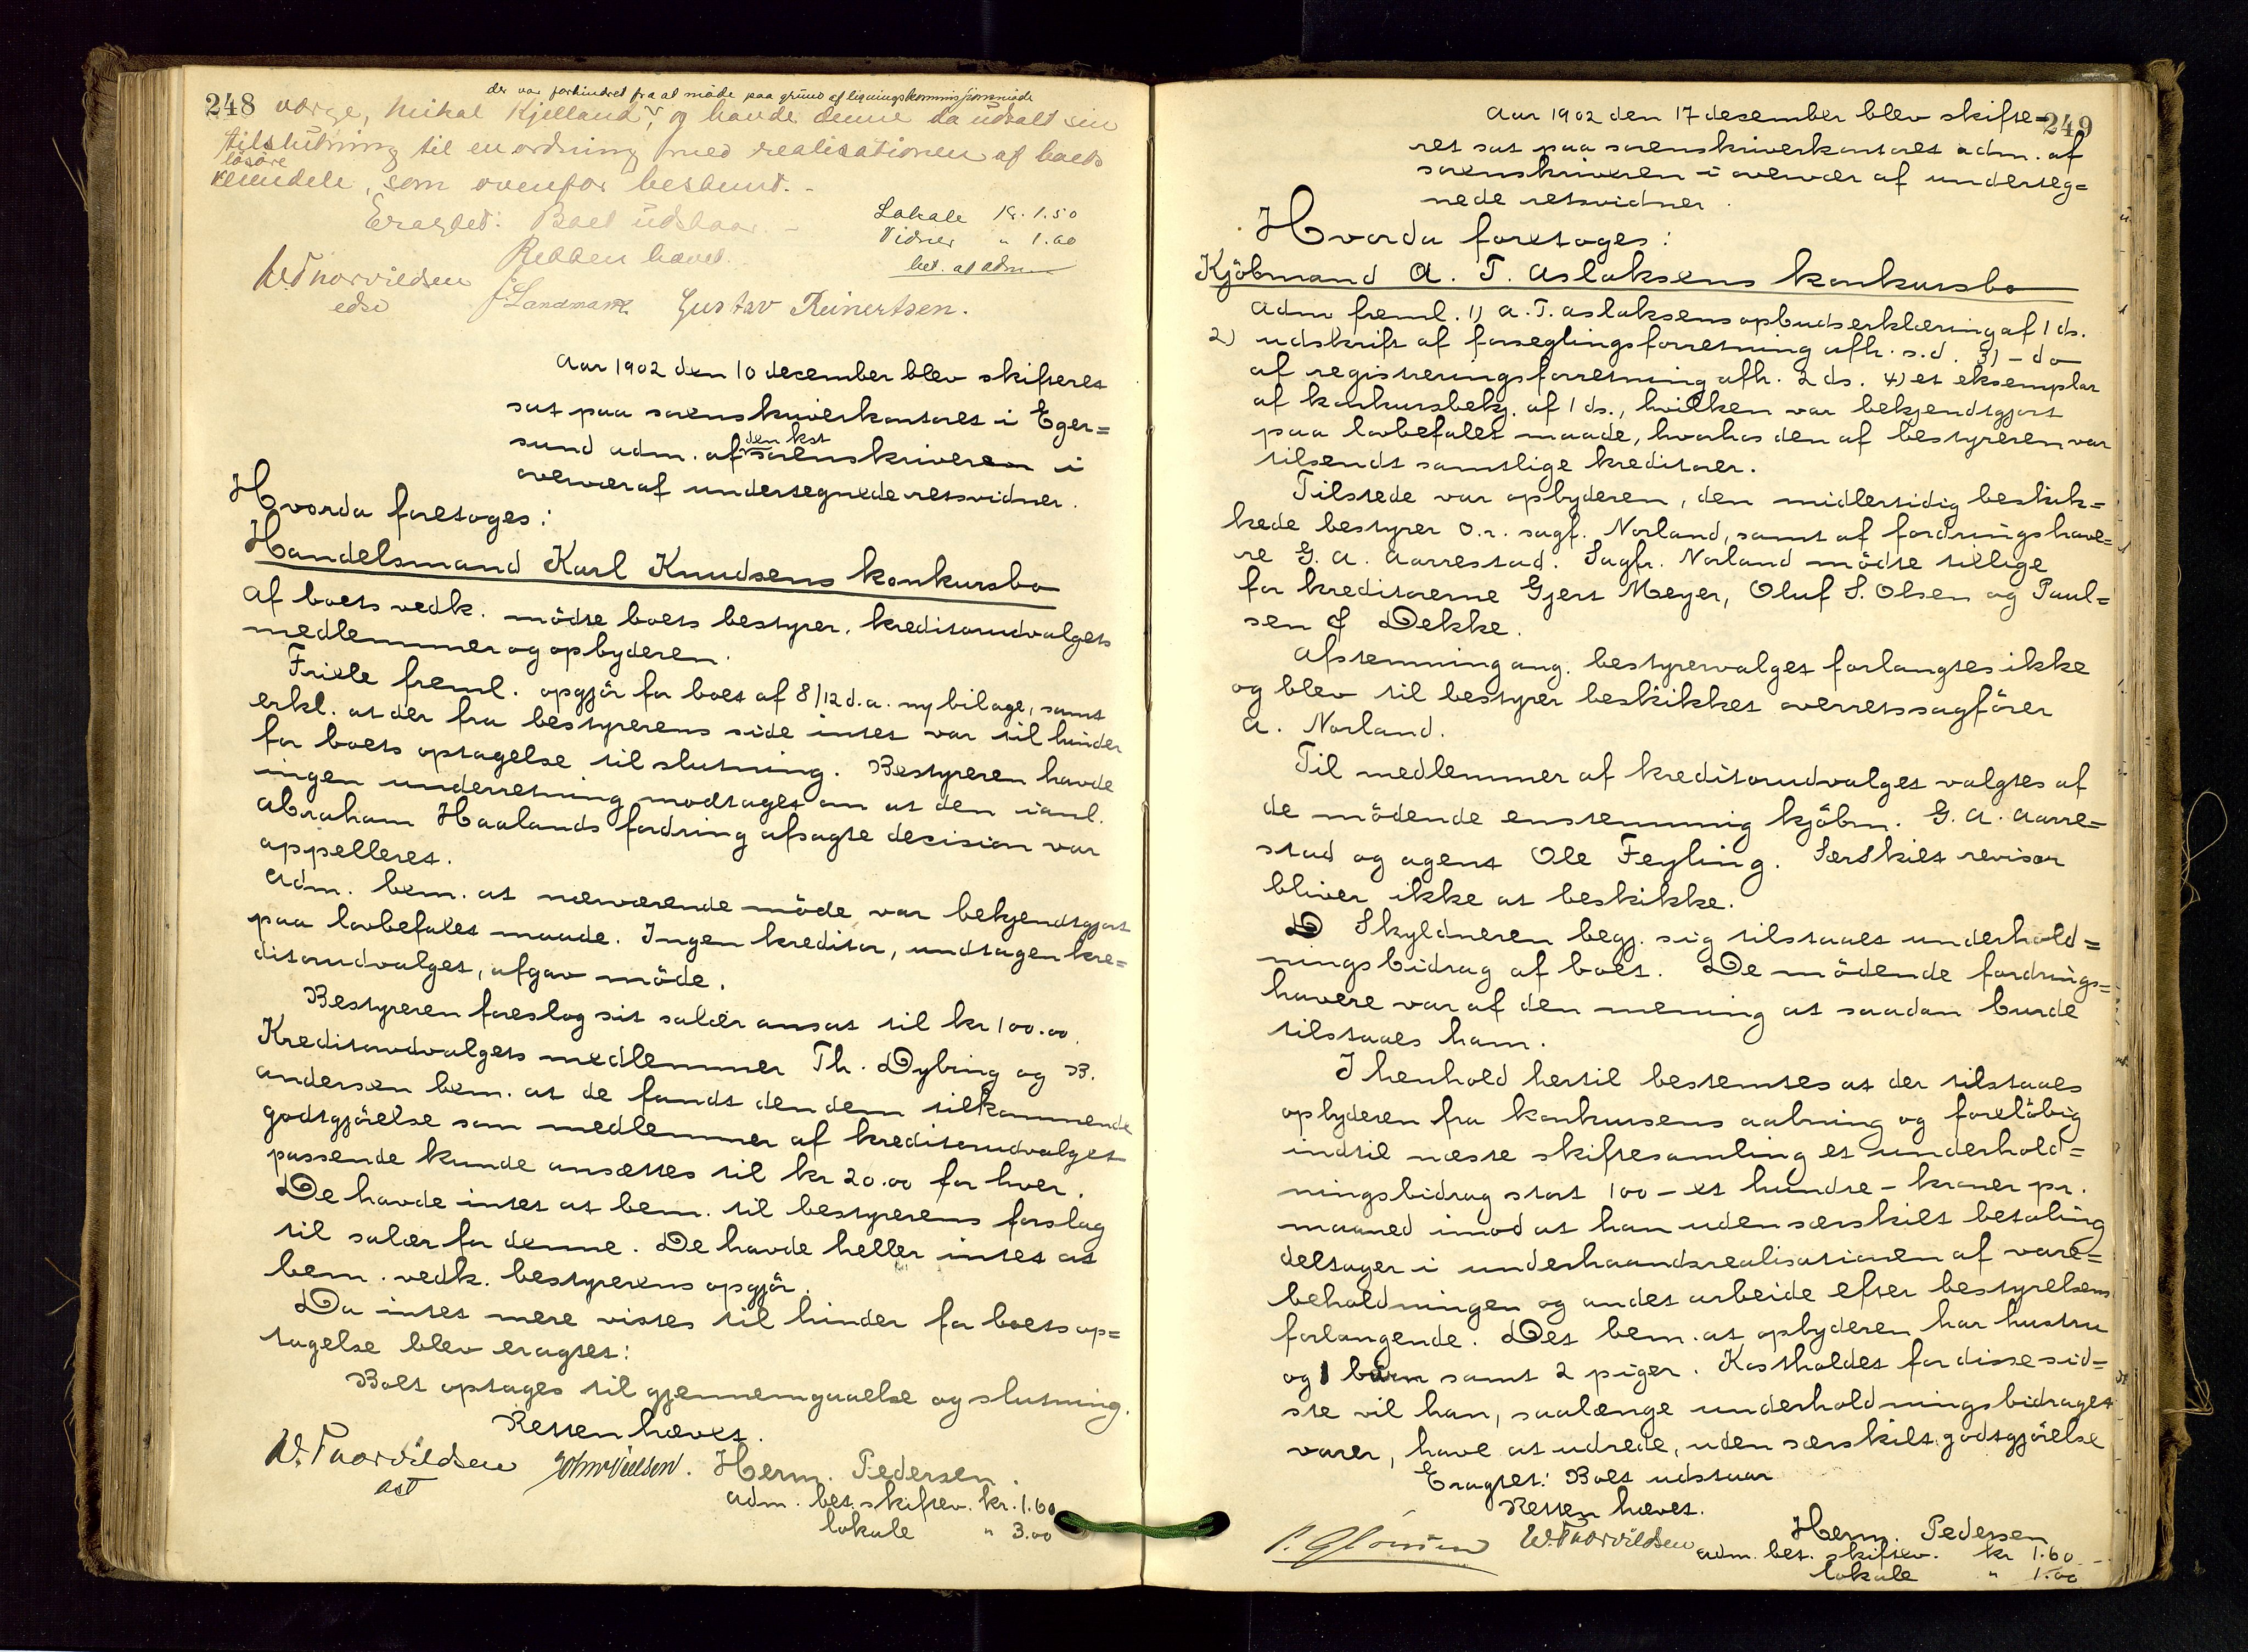 248
der var forhindret fra at möde paa grund af ligningskommissionsmöde
værge, Mikal Kjelland, og havde denne da udtalt sin
tilslutning til en ordning med realisationen af boets
løsøre
eiendele, som ovenfor bestemt. -
Eragtet: Boet udstaar. -
Lokale Kr. 1.50
Vidner " 1.60
bet. af adm
Retten hævet.
W. Thorvildsen J. Landmark Gustav Reinertsen.
edsv
Aar 1902 den 10 december blev skifteret
sat paa sorenskriverkontoret i Eger=
den kst
sund adm. af sorenskriveren i
overvær af undertegnede retsvidner.
Hvorda foretoges:
Handelsmand Karl Knudsens konkursbo
Af boets vedk. mödte boets bestyrer, kreditorudvalgets
medlemmer og opbyderen.
Friele freml. opgjör for boet af 8/12 d.a. m/ bilage, samt
erkl. at der fra bestyrerens side intet var til hinder
for boets optagelse til slutning. Bestyreren havde
ingen underretning modtaget om at den i anl.
Abraham Haalands fordring afsagte decision var
appelleret.
Adm. bem. at nærværende möde var bekjendtgjort
paa lovbefalet maade. Ingen kreditor, undtagen kre=
ditorudvalget, afgav möde.
Bestyreren foreslog sit salær ansat til kr 100.00.
Kreditorudvalgets medlemmer Th. Dybing og B.
Andersen bem. at de fandt den dem tilkommende
godtgjörelse som medlemmer af kreditorudvalget
passende kunde ansættes til kr 20.00 for hver.
De havde intet at bem. til bestyrerens forslag
til salær for denne. De havde heller intet at
bem. vedk. bestyrerens opgjör.
Da intet mere vistes til hinder for boets op=
tagelse blev eragtet:
Boet optages til gjennemgaaelse og slutning.
Retten hævet.
W. Thorvildsen John Nielsen. Herm. Pedersen.
cst
adm. bet. skiftev. kr. 1.60
lokale " 3.00
249
Aar 1902 den 17 desember blev skifte=
ret sat paa sorenskriverkontoret adm. af
sorenskriveren i overvær af underteg=
nede retsvidner.
Hvorda foretoges:
Kjöbmand A. T. Aslaksens konkursbo
Adm freml. 1) A. T. Aslaksens opbudserklæring af 1 ds.
2) udskrift af forseglingsforretning afh. s.d. 3) - do
af registreringsforretning afh. 2 ds. 4) et eksemplar
af konkursbekj. af 1 ds., hvilken var bekjendtgjort
paa lovbefalet maade, hvorhos den af bestyreren var
tilsendt samtlige kreditorer.
Tilstede var opbyderen, den midlertidig beskik=
kede bestyrer o.r. sagf. Norland, samt af fordringshave=
re G. A. Aarrestad. Sagfr. Norland mödte tillige
for kreditorerne Gjert Meyer, Oluf S. Olsen og Paul=
sen & Dekke.
Afstemning ang. bestyrervalget forlangtes ikke
og blev til bestyrer beskikket overretssagförer
A. Norland.
Til medlemmer af kreditorudvalget valgtes af
de mödende enstemmig kjöbm. G. A. Aarre=
stad og agent Ole Feyling. Særskilt revisor
bliver ikke at beskikke.
Skyldneren begj. sig tilstaaet underhold=
ningsbidrag af boet. De mödende fordrings=
havere var af den mening at saadan burde
tilstaaes ham.
I henhold hertil bestemtes at der tilstaaes
opbyderen fra konkursens aabning og foreløbig
indtil næste skiftesamling et underhold=
ningsbidrag stort 100 - et hundre - kroner pr.
maaned imod at han uden særskilt betaling
deltager i underhaandsrealisationen af vare=
beholdningen og andet arbeide efter bestyrelsens
forlangende. Det bem. at opbyderen har hustru
og 1 barn samt 2 piger. Kostholdet for disse sid=
ste vil han, saalænge underholdningsbidraget
varer, have at udrede, uden særskilt godtgjörelse
Eragtet: Boet udstaar
Retten hævet.
W. Thorvildsen Herm. Pedersen
adm. bet. skiftev. kr 1.60
lokale " 1.00